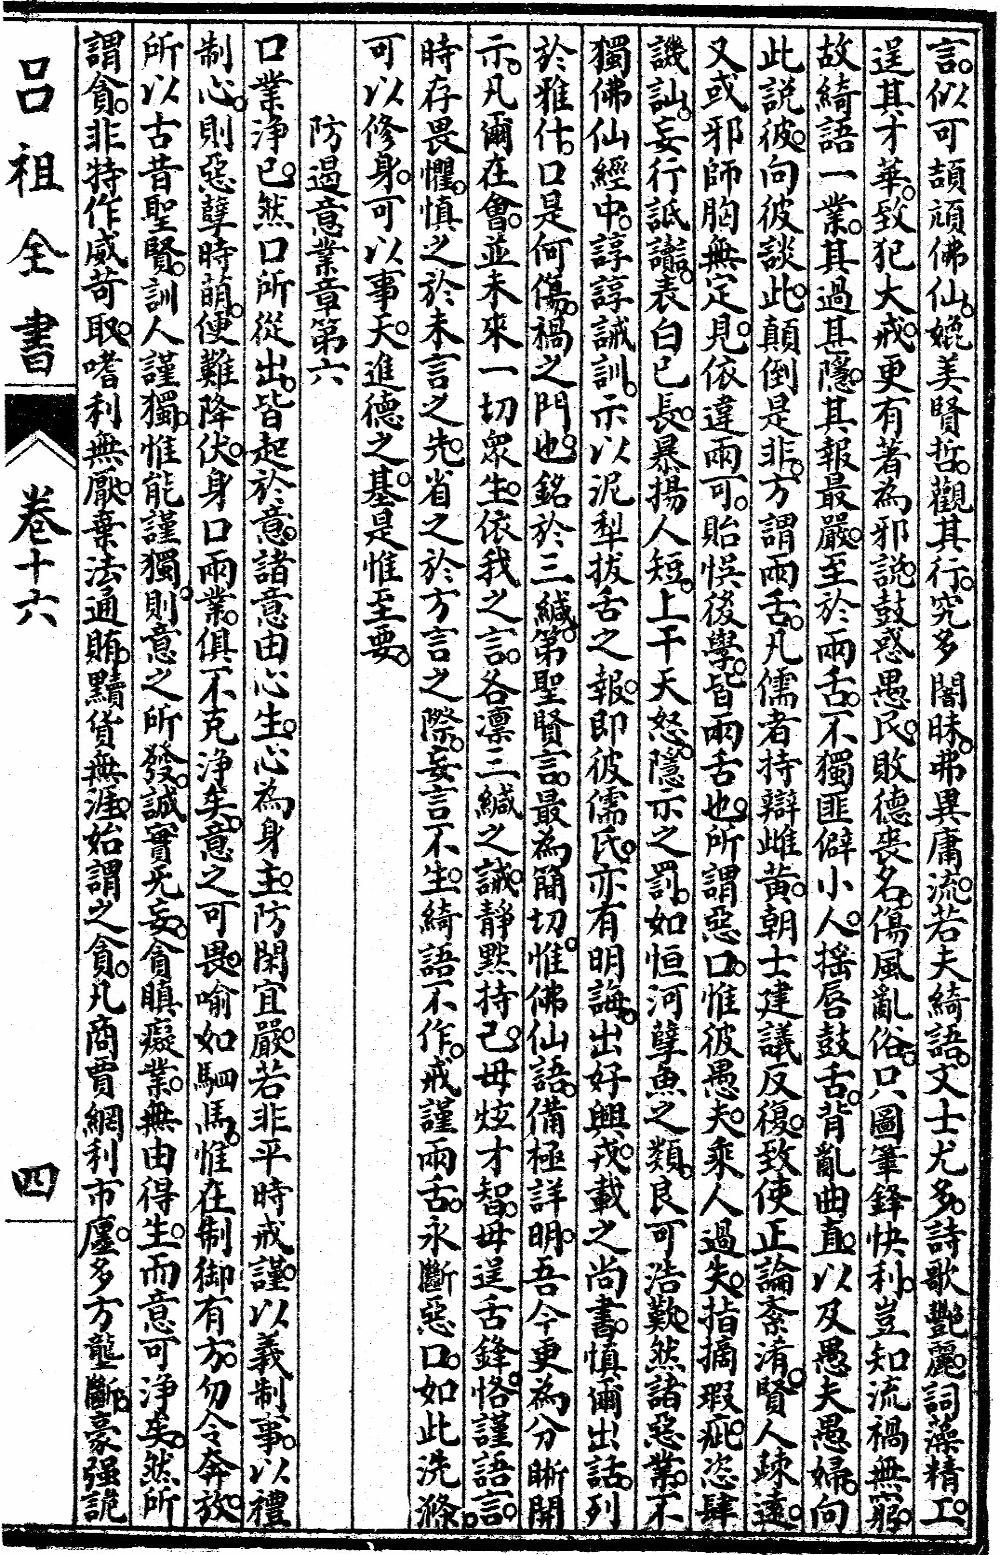 言。似可頡頏佛仙。媲美賢哲。觀其行。究多闇昧。弗異庸流。若夫綺語。文士尤多。詩歌艷麗。詞藻精工。
逞其才華。致犯大戒。更有著為邪說。鼓惑愚民。敗德喪名。傷風亂俗。只圖筆鋒快利。豈知流禍無窮。
故綺語一業。其過其隱。其報最嚴。至於兩舌。不獨匪僻小人。搖唇鼓舌。背亂曲直。以及愚夫愚婦。向
此說彼。向彼談此。顛倒是非。方謂兩舌。凡儒者持辯雌黃。朝士建議反復。致使正論紊淆。賢人疎遠。
又或邪師胸無定見。依違兩可。貽悞後學。皆兩舌也。所謂惡口。惟彼愚夫。乘人過失。指摘瑕疵。恣肆
譏訕。妄行詆讟。表白己長。暴揚人短。上干天怒。隱示之罰。如恒河孽魚之類。良可浩歎。然諸惡業。不
獨佛仙經中。諄諄誡訓。示以泥犁拔舌之報。即彼儒氏。亦有明誨。出好興戎。載之尚書。慎爾出話。列
於雅什。口是何傷。禍之門也。銘於三緘。第聖賢言。最為簡切。惟佛仙語。備極詳明。吾今更為分晰開
示。凡爾在會。並未來一切眾生。依我之言。各凛三緘之誡。靜默持己。毋炫才智。毋逞舌鋒。恪謹語言。
時存畏懼。慎之於未言之先。省之於方言之際。妄言不生。綺語不作。戒謹兩舌。永斷惡口。如此洗滌。
可以修身。可以事天。進德之基。是惟至要。
防過意業章第六
口業淨已。然口所從出。皆起於意。諸意由心生。心為身主。防閑宜嚴。若非平時戒謹。以義制事。以禮
制心。則惡孽時萌。便難降伏。身口兩業。俱不克淨矣。意之可畏。喻如駟馬。惟在制御有方。勿令奔放。
所以古昔聖賢。訓人謹獨。惟能謹獨。則意之所發。誠實无妄。貪瞋癡業。無由得生。而意可淨矣。然所
謂貪。非特作威苛取。嗜利無厭。棄法通賄。黷貨無涯。始謂之貪。凡商賈網利市廛。多方壟斷。豪强詭
呂祖全書
卷十六
四